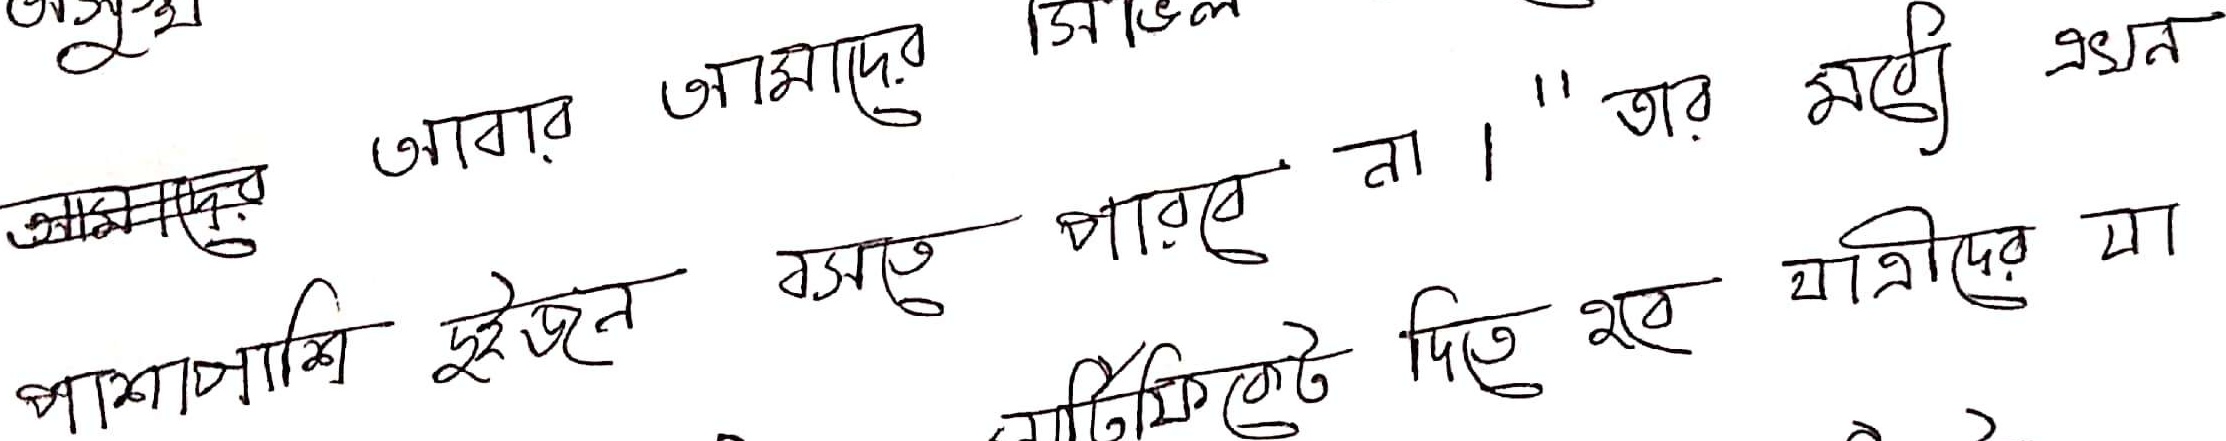 অসুস্থ
আবার আমাদের সিভিল
পাশাপাশি দুইজন বসতে পারবে না।" তার মধ্যে এখন
সার্টিফিকেট দিতে হবে যাত্রীদের যা